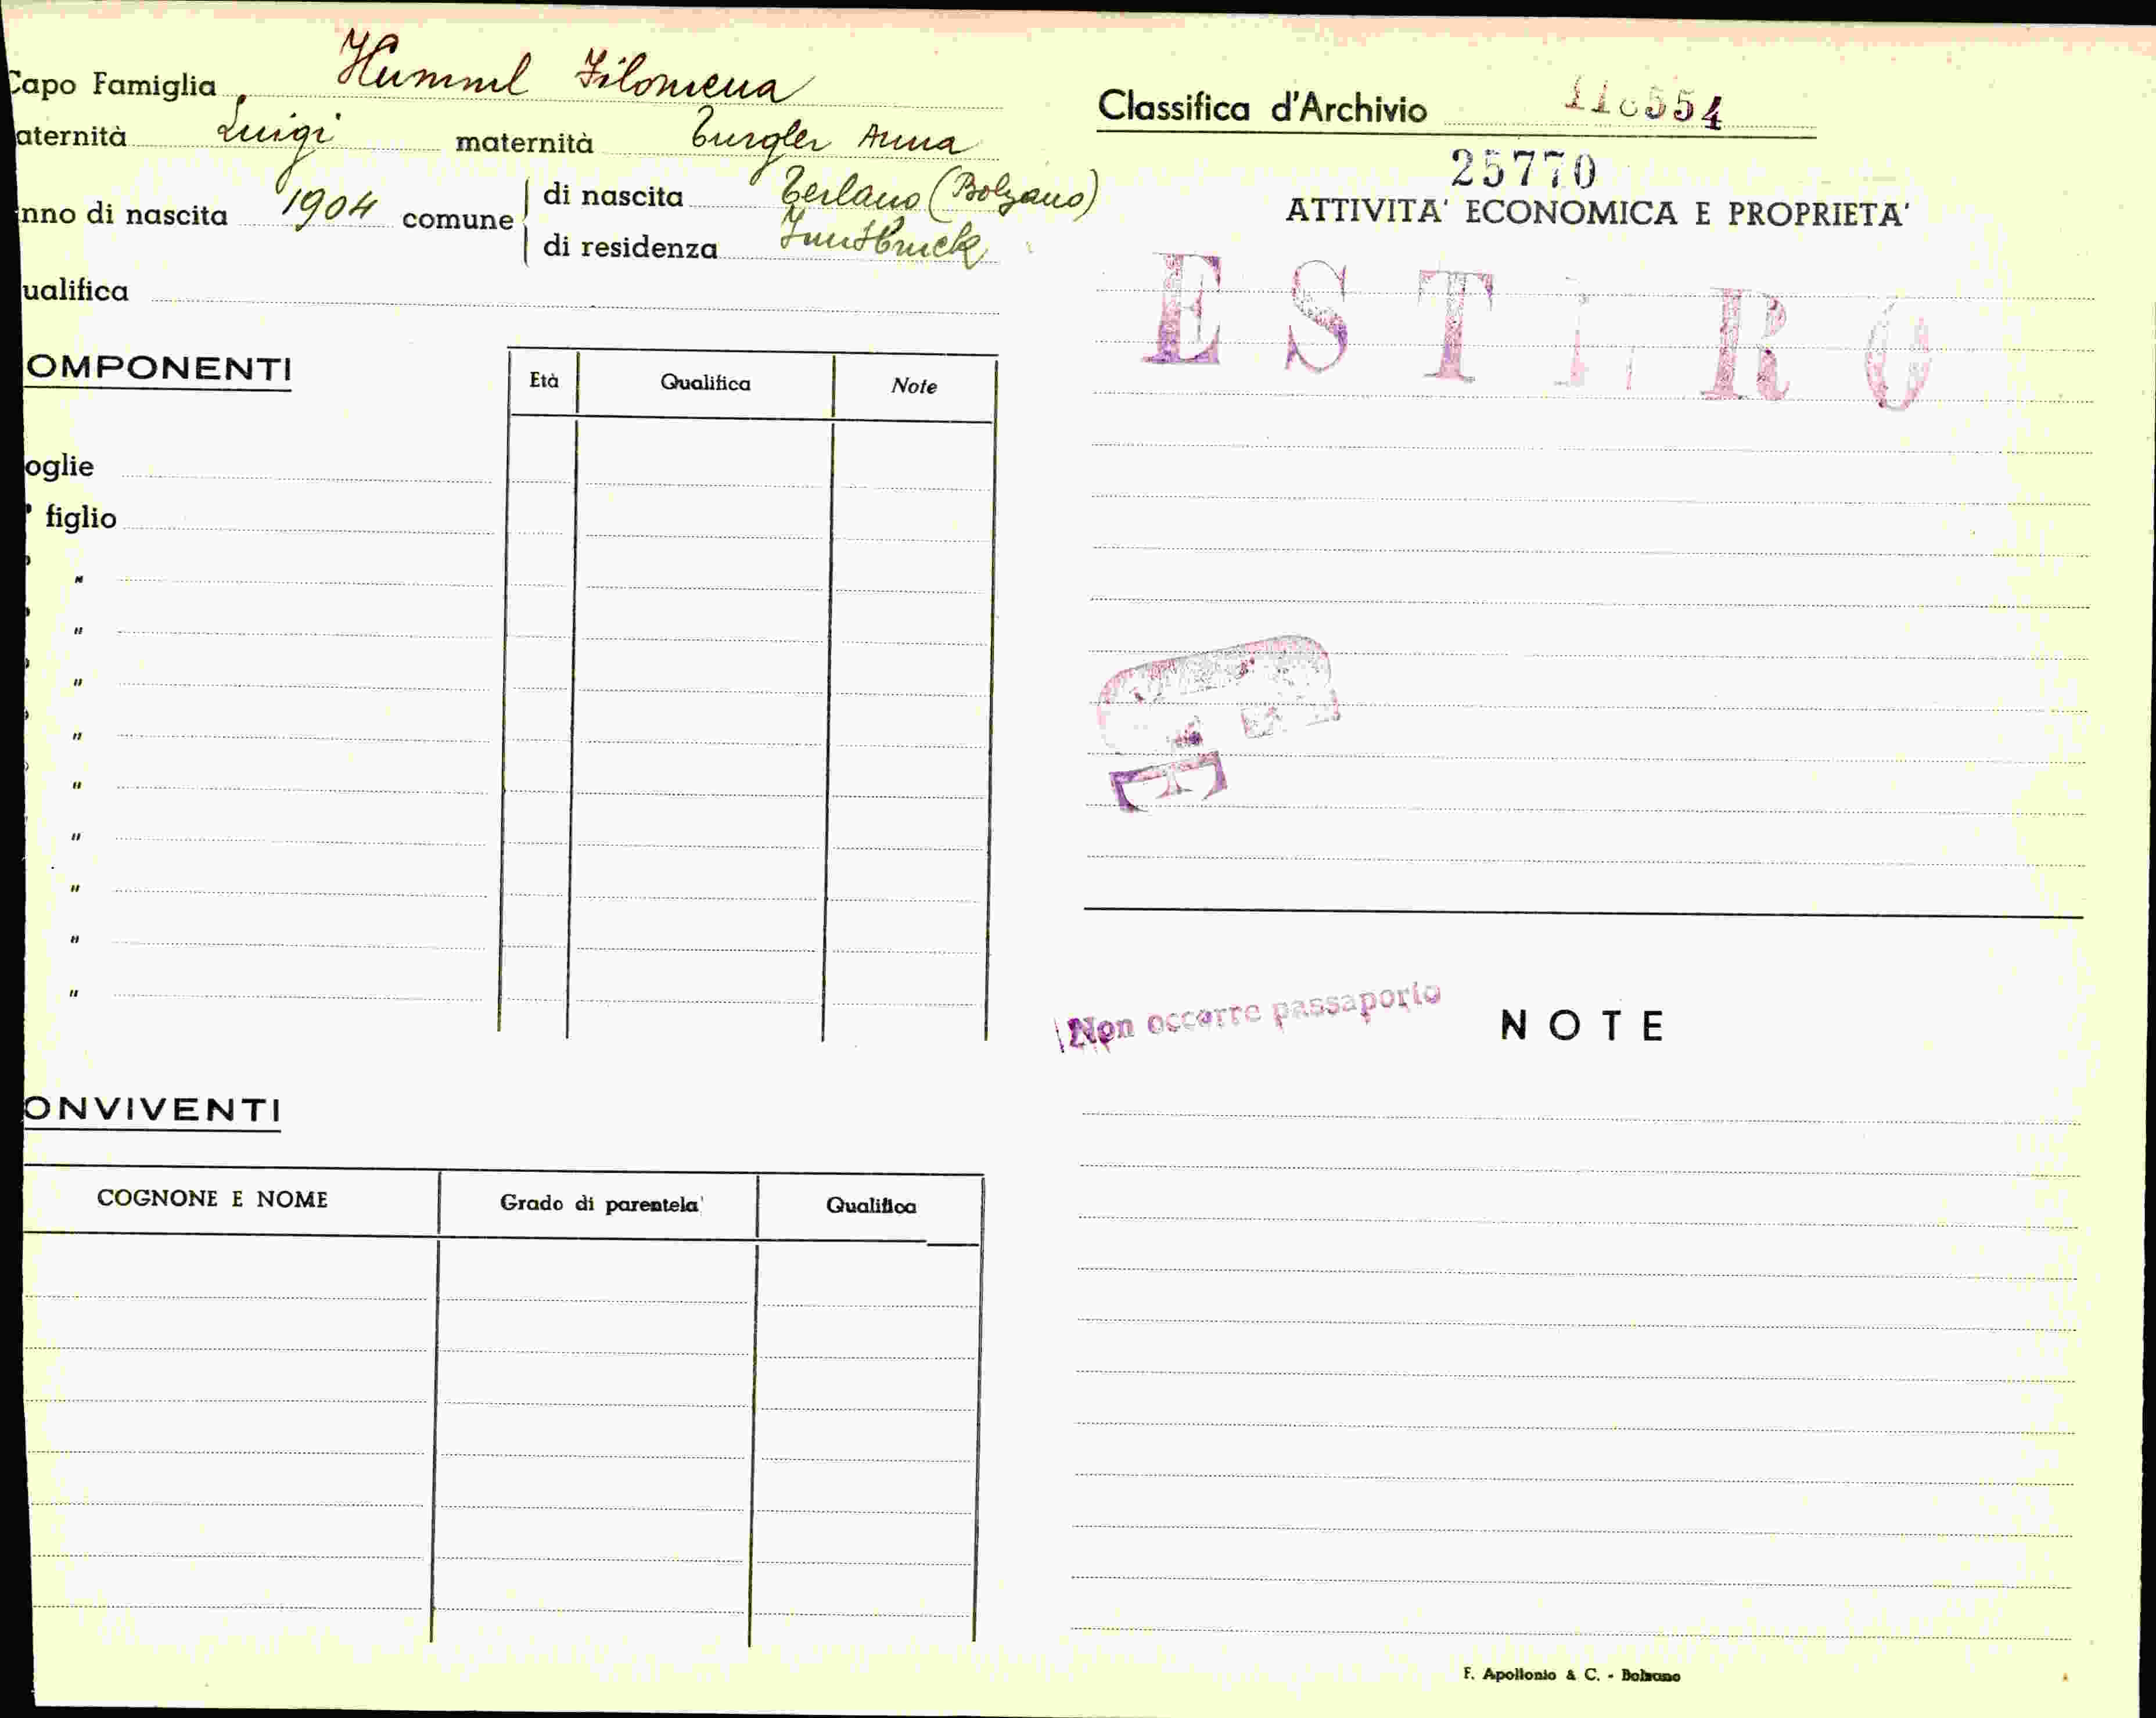 Capo Famiglia Hummel Filomena
aternità Luigi maternità Turgler Anna
nno di nascita 1904 comune di nascita Terlano (Bolzano)
di residenza Innsbruck
ualifica
OMPONENTI
Età Qualifica Note
oglie
° figlio
"
"
"
"
"
"
"
"
"
ONVIVENTI
COGNONE E NOME Grado di parentela Qualifica
Classifica d'Archivio 110554
25770
ATTIVITA' ECONOMICA E PROPRIETA'
ESTERO
Non occorre passaporto
NOTE
F. Apollonio & C. - Bolzano